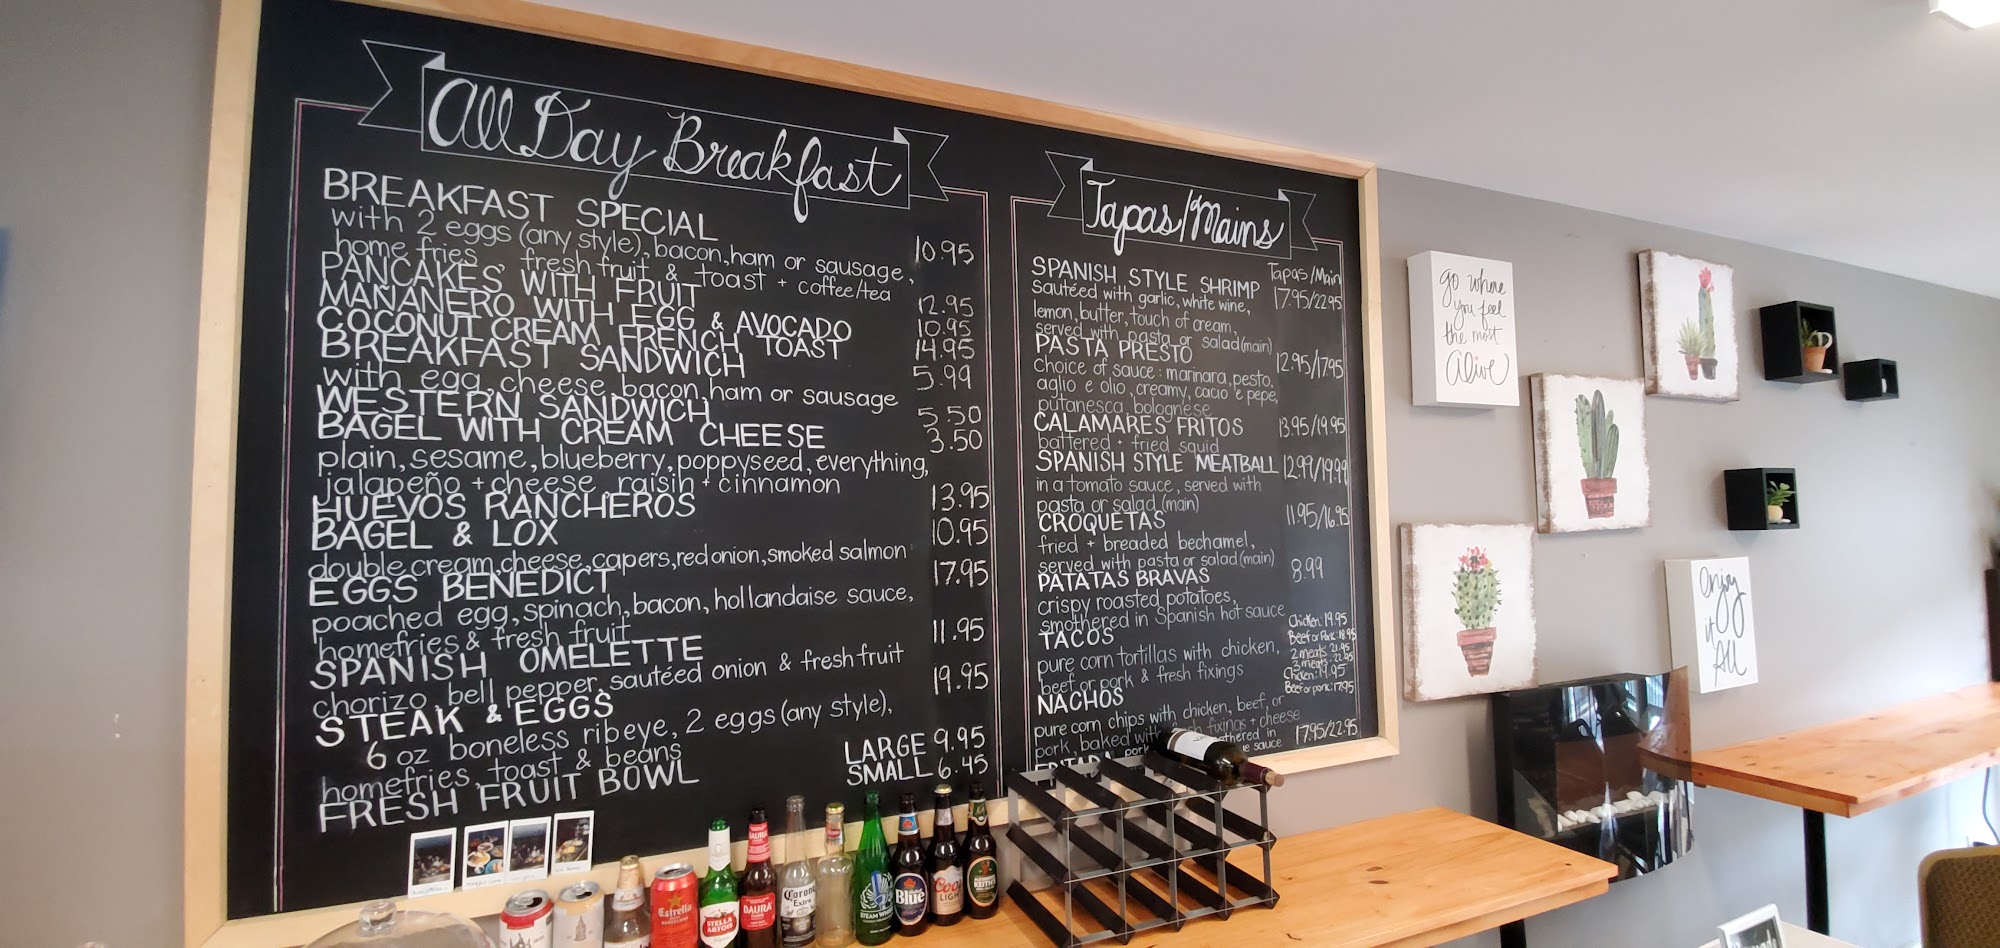 All Day Breakfast
BREAKFAST SPECIAL
with 2 eggs (any style), bacon, ham or sausage, 10.95
home fries, fresh fruit & toast + coffee/tea
PANCAKES WITH FRUIT 12.95
MAÑANERO WITH EGG & AVOCADO 10.95
COCONUT CREAM FRENCH TOAST 14.95
BREAKFAST SANDWICH 5.99
with egg, cheese, bacon, ham or sausage
WESTERN SANDWICH 5.50
BAGEL WITH CREAM CHEESE 3.50
plain, sesame, blueberry, poppyseed, everything,
jalapeño + cheese, raisin + cinnamon
HUEVOS RANCHEROS 13.95
BAGEL & LOX 10.95
double cream, cheese, capers, red onion, smoked salmon
EGGS BENEDICT 17.95
poached egg, spinach, bacon, hollandaise sauce,
homefries & fresh fruit
SPANISH OMELETTE 11.95
chorizo, bell pepper, sautéed onion & fresh fruit
STEAK & EGGS 19.95
6 oz boneless ribeye, 2 eggs (any style),
homefries, toast & beans
FRESH FRUIT BOWL LARGE 9.95
SMALL 6.45
Tapas/Mains
Tapas/Main
SPANISH STYLE SHRIMP 17.95/22.95
sautéed with garlic, white wine,
lemon, butter, touch of cream,
served with pasta or salad (main)
PASTA PRESTO 12.95/17.95
choice of sauce: marinara, pesto,
aglio e olio, creamy, cacio e pepe,
putanesca, bolognese
CALAMARES FRITOS 13.95/19.95
battered + fried squid
SPANISH STYLE MEATBALL 12.99/19.99
in a tomato sauce, served with
pasta or salad (main)
CROQUETAS 11.95/16.95
fried + breaded bechamel,
served with pasta or salad (main)
PATATAS BRAVAS 8.99
crispy roasted potatoes,
smothered in Spanish hot sauce
TACOS Chicken: 19.95
Beef or Pork: 18.95
pure corn tortillas with chicken, 2 meats 21.95
beef or pork & fresh fixings 3 meats 22.95
NACHOS Chicken: 19.95
Beef or pork: 17.95
pure corn chips with chicken, beef, or
pork, baked with fresh fixings + cheese
17.95/22.95
sauce
go where
you feel
the most
alive
enjoy
it
All
Estrella
STELLA ARTOIS
DAURA
DAURA
Corona
Extra
STEAM WHISTLE
Blue
Coors
LIGHT
KEITH'S